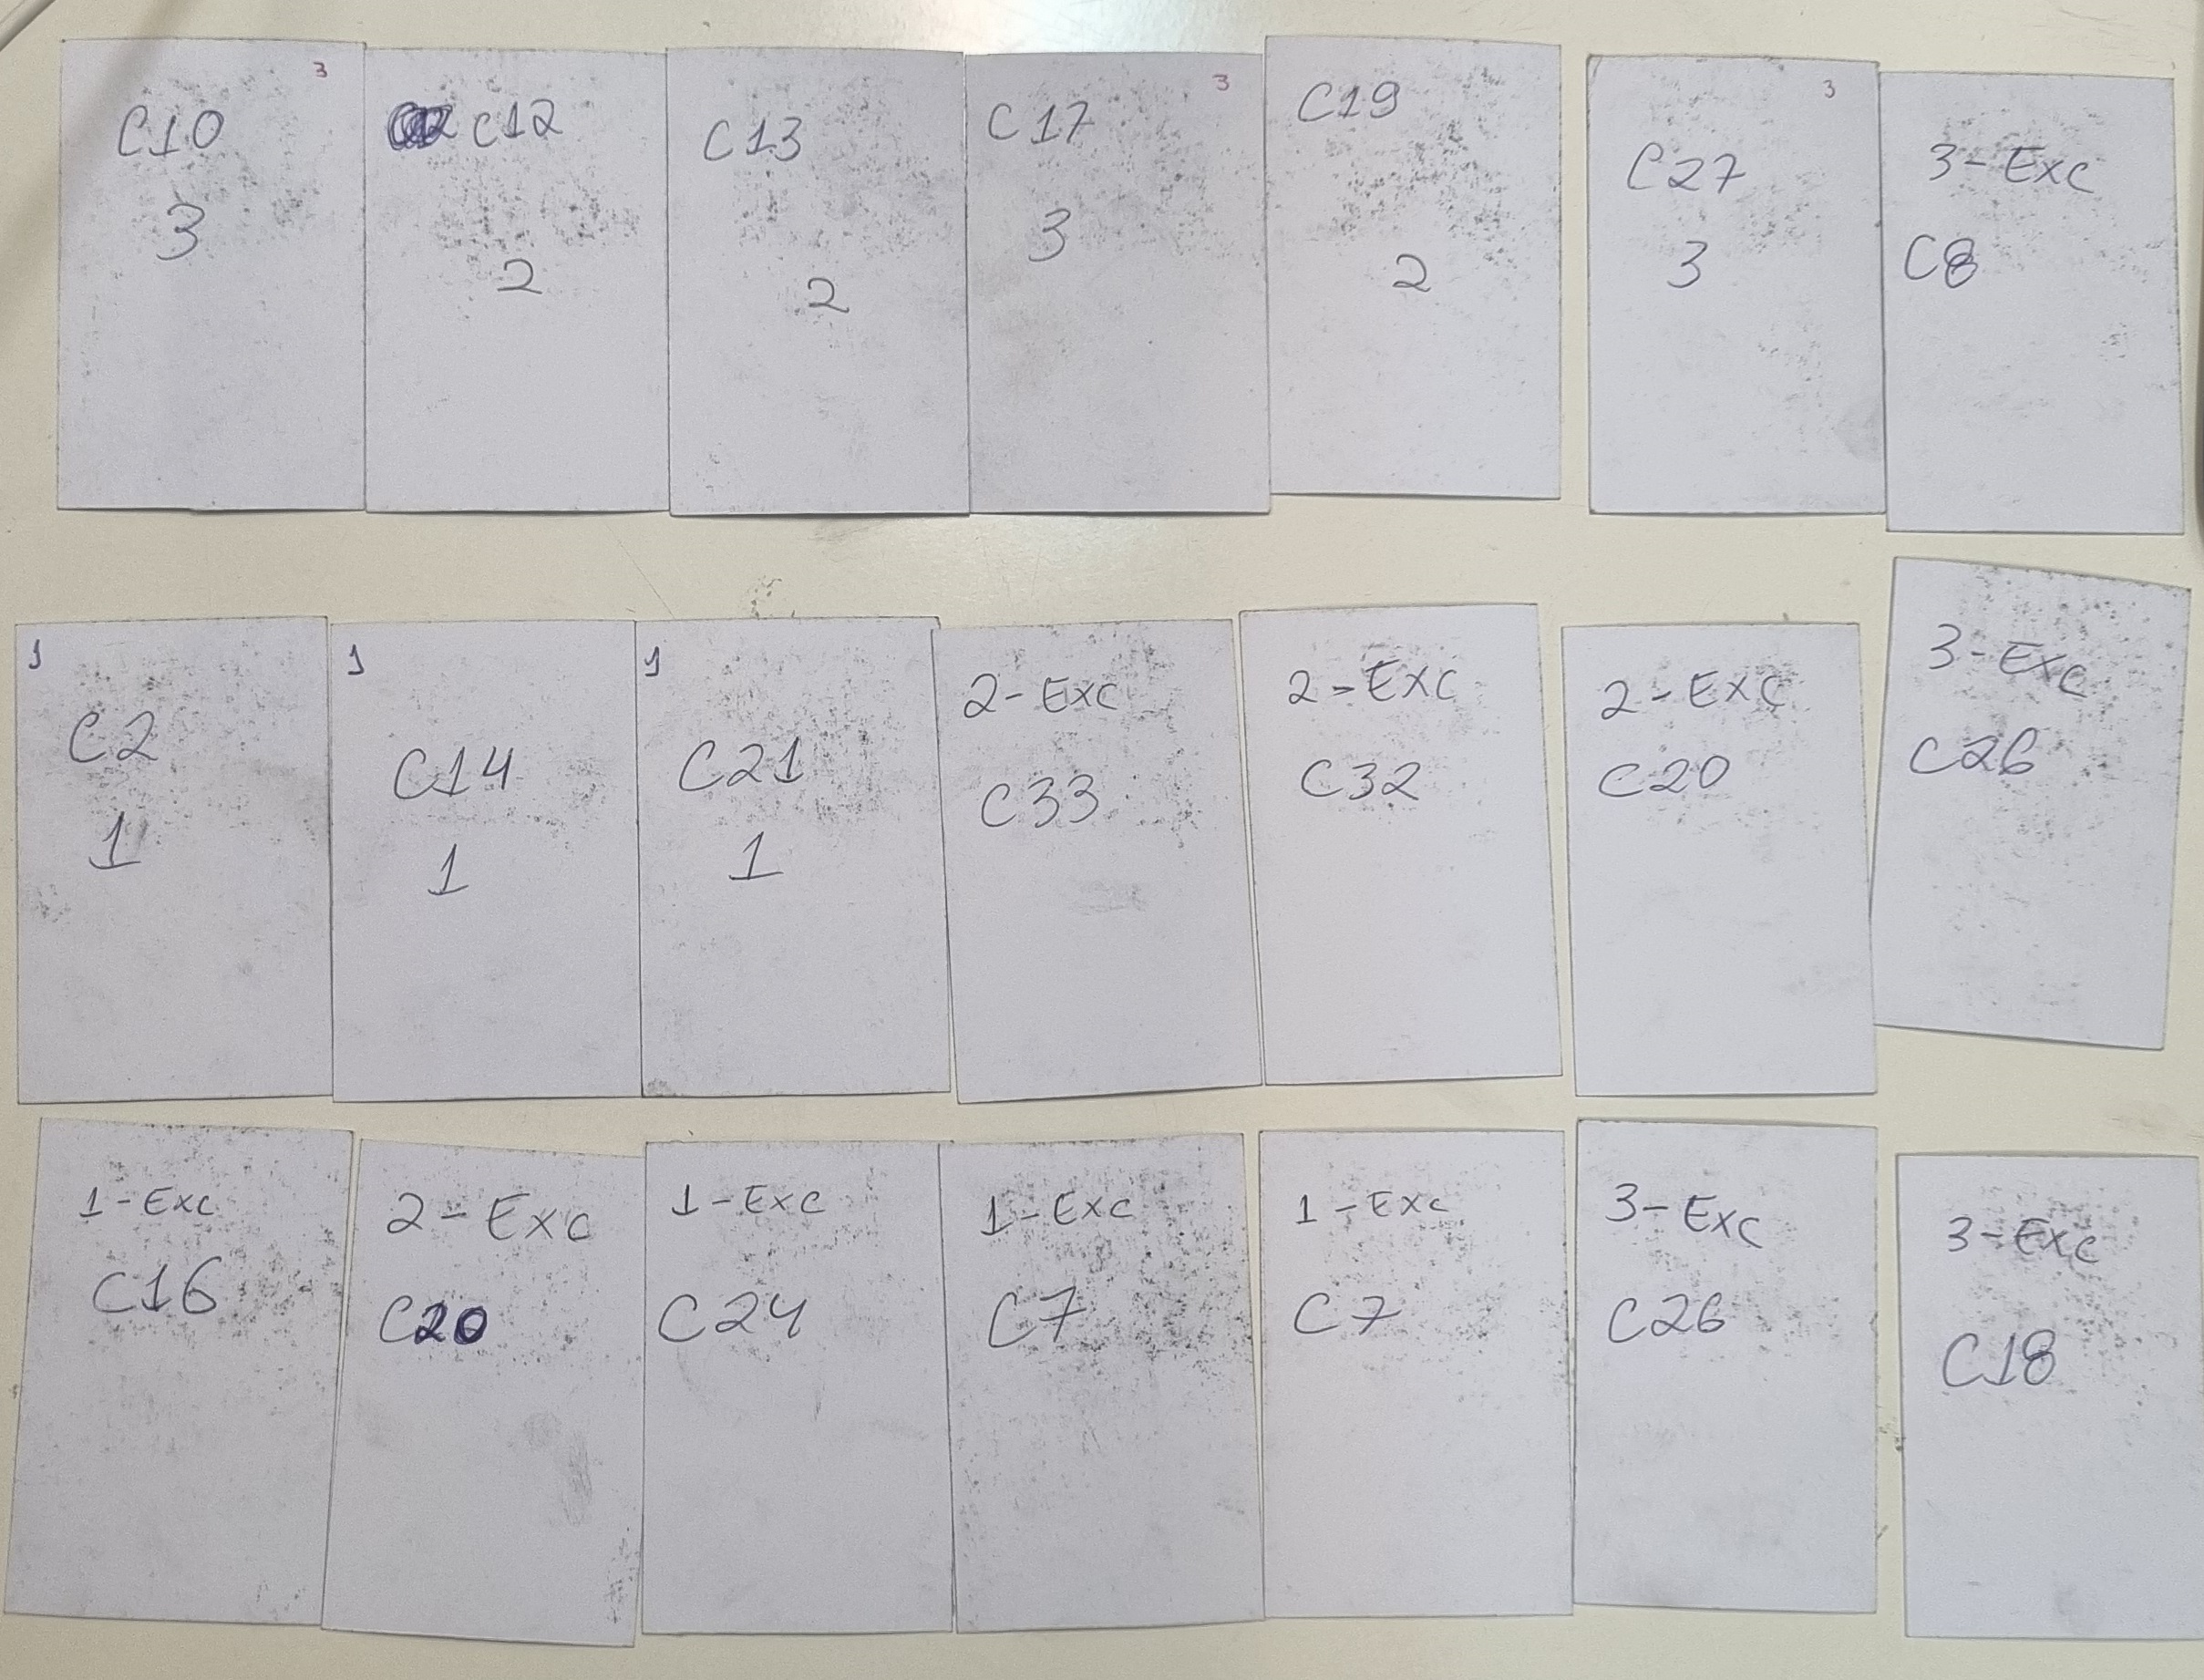 3
C10
3
C12
2
C13
2
3
C17
3
C19
2
3
C27
3
3-Exc
C8
1
C2
1
1
C14
1
1
C21
1
2-Exc
C33
2-Exc
C32
2-Exc
C20
3-Exc
C26
1-Exc
C16
2-Exc
C20
1-Exc
C24
1-Exc
C7
1-Exc
C7
3-Exc
C26
3-Exc
C18